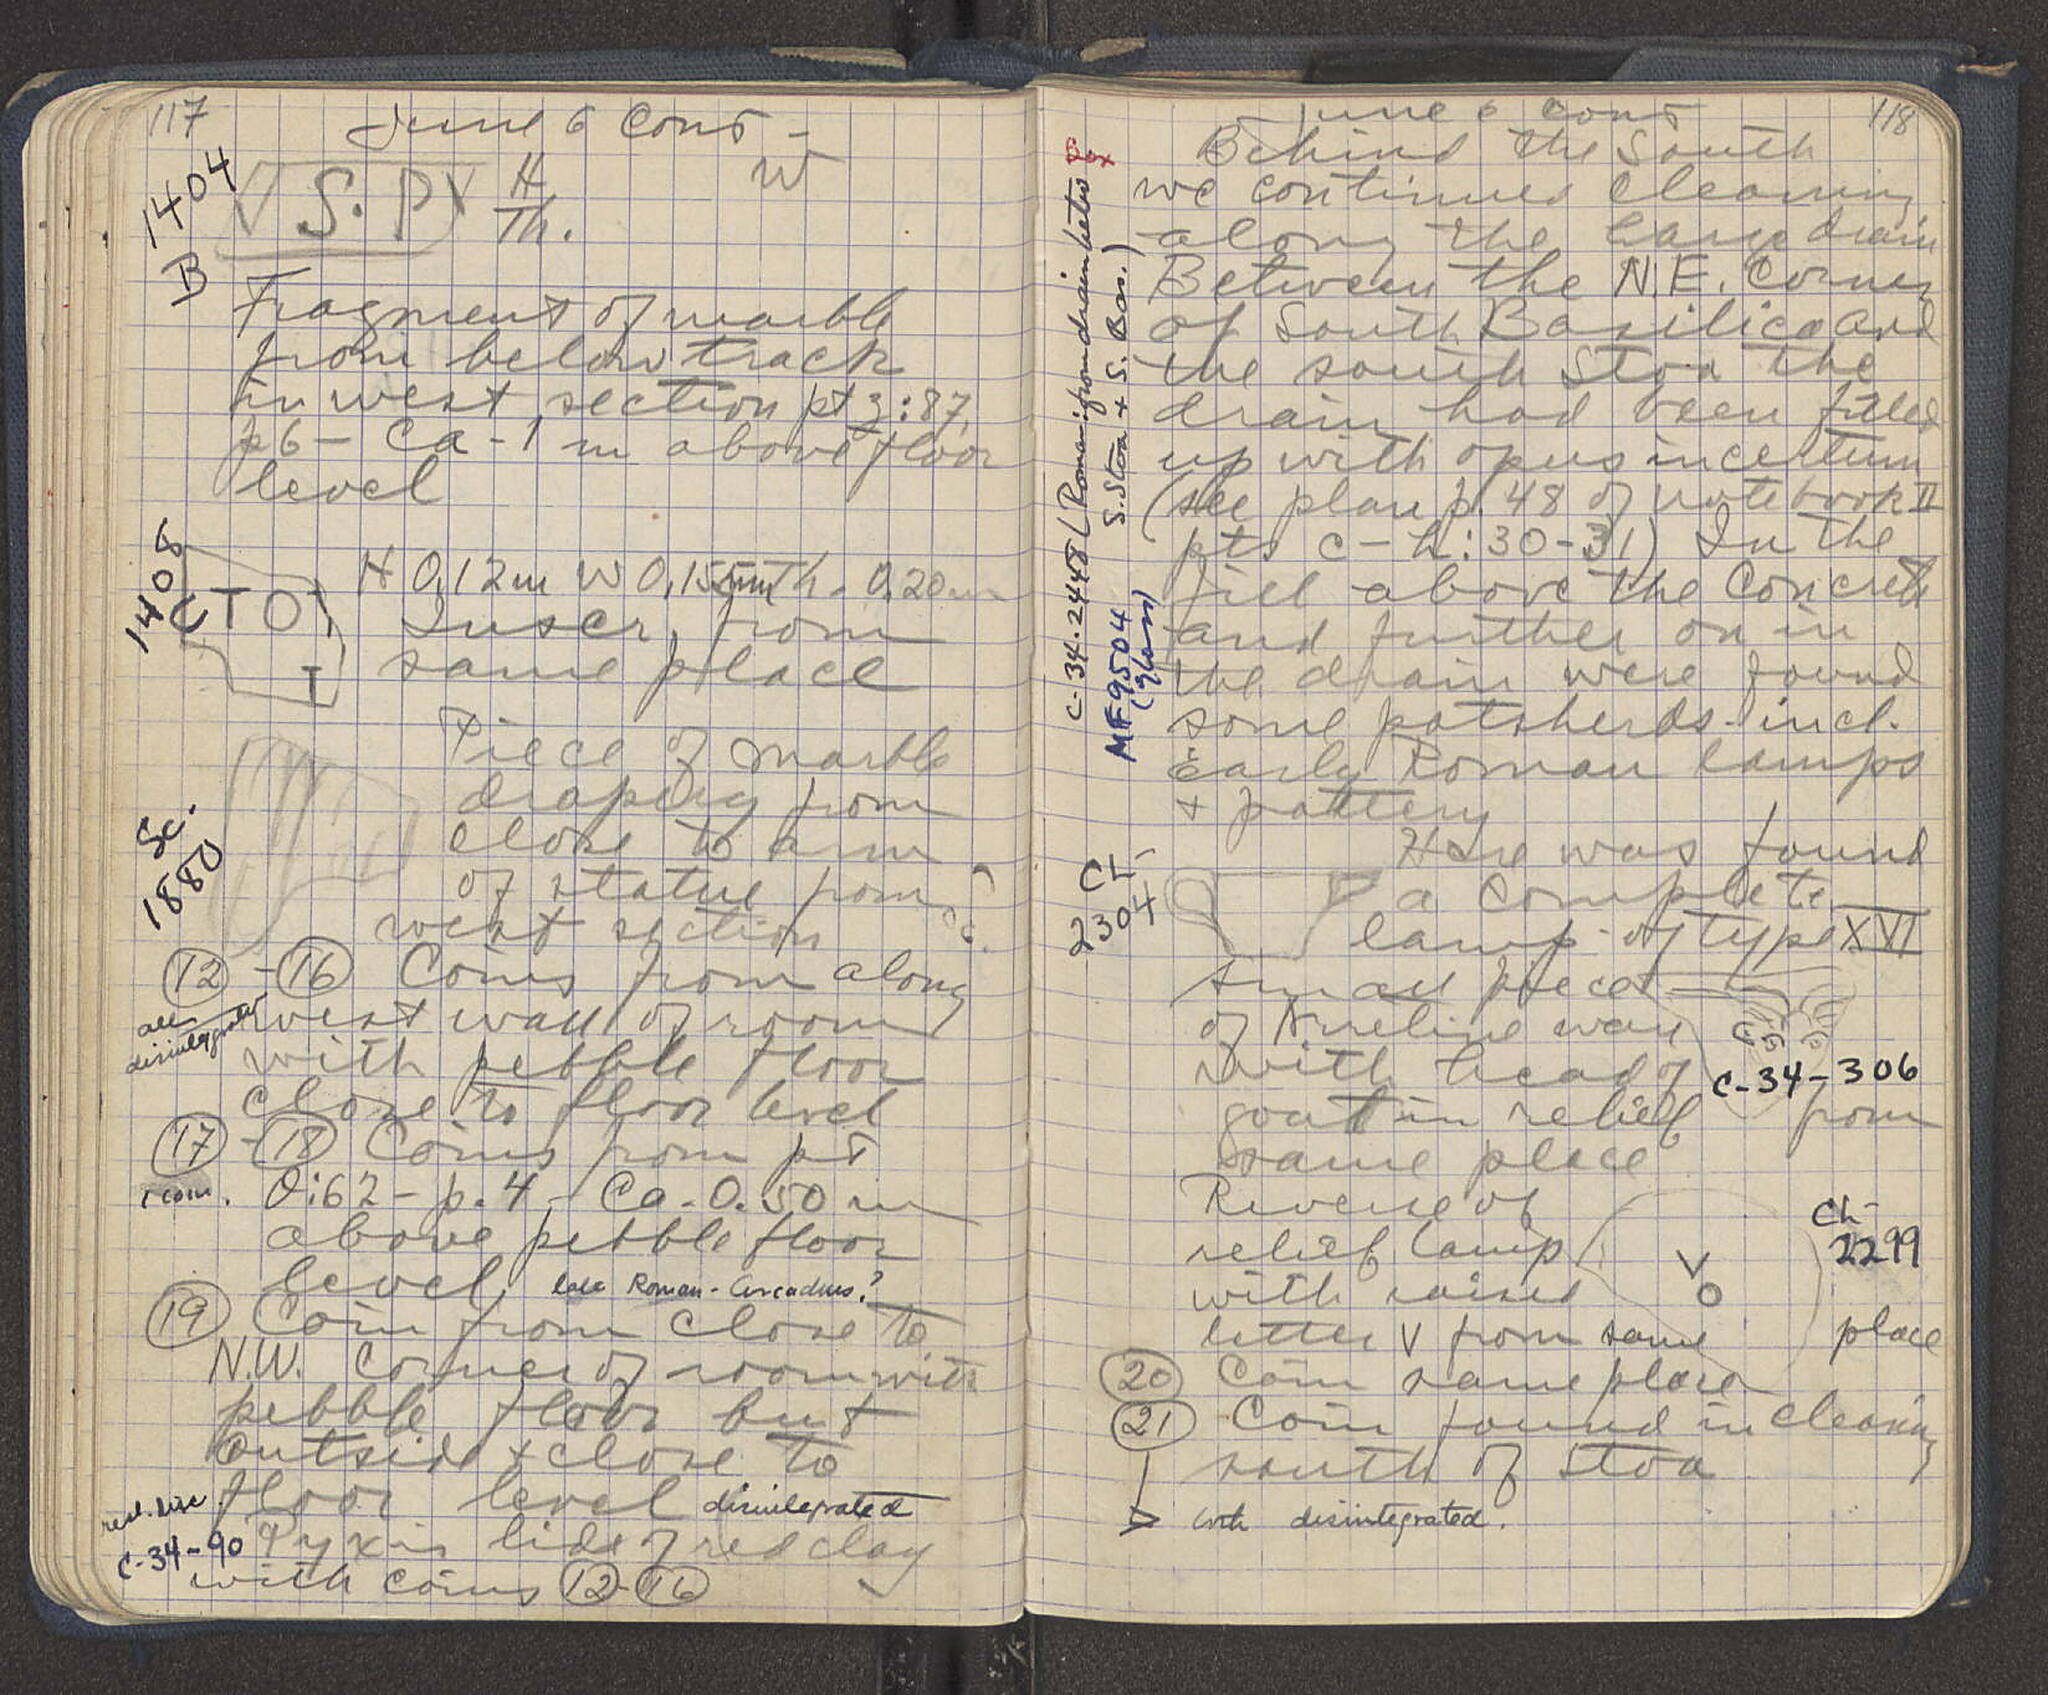 117
June 6 cont -
1404
B
S. P
H
Th.
W
Fragment of marble
from below track
in west section pt z:87,
p6 - Ca - 1 m above floor
level
1408
C T O
T
H 0,12m W 0,155m Th. 0,20m
Inscr, from
same place
Sc.
1880
Piece of marble
drapery from
close to arm
of statue from
west section
12 - 16 Coins from along
all
disintegrated
west wall of room
with pebble floor
close to floor level
17 - 18 Coins from pt
1 coin.
O:62 - p. 4, - Ca. 0.50 m
above pebble floor
level, late Roman - Arcadius?
19 Coin from close to
N.W. corner of room with
pebble floor but
outside + close to
floor level disintegrated
C-34-90
Pyxis lid of red clay
with coins 12 - 16
118
June 6 cont
Behind the South
we continued cleaning
along the large drain
Between the N.E. Corner
of South Basilica and
the south Stoa the
drain had been filled
up with opus incertum
(see plan p. 48 of notebook II
pts c-h:30-31) In the
fill above the concrete
and further on in
the drain were found
some potsherds incl.
Early Roman lamps
+ pottery
C-34-2448 (Roman: from drain betw
S. Stoa + S. Bas.)
Box
MF 9504
(glass)
CL-
2304
Here was found
a complete
lamp of type XVI
Small piece
of Arretine ware
with head of
C-34-306
goat in relief from
same place
Reverse of
relief lamp
with raised
letter V from same place
V
O
CL-
2299
20 Coin same place
21 Coin found in cleaning
south of Stoa
both disintegrated.